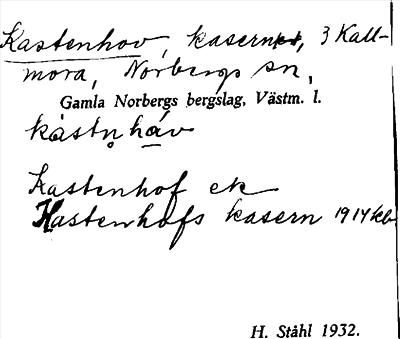 Kastenhov, kasern, 3 Kall-
mora, Norbergs sn,
Gamla Norbergs bergslag, Västm. l.
kàstn̥ háv
Kastenhof ek
Kastenhofs kasern 1914 kb
H. Ståhl 1932.